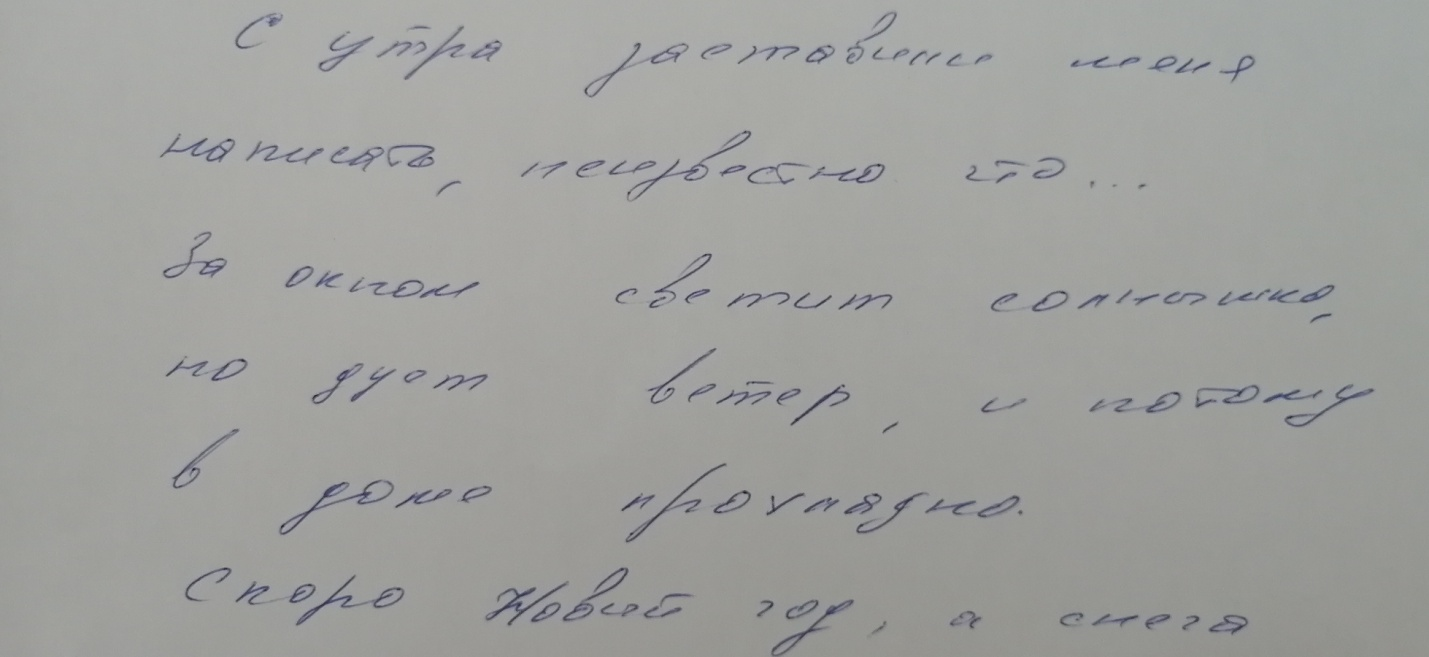 С утра заставили меня
написать, неизвестно что...
За окном светит солнышко,
но дует ветер, и потому
в доме прохладно.
Скоро Новый год, а снега